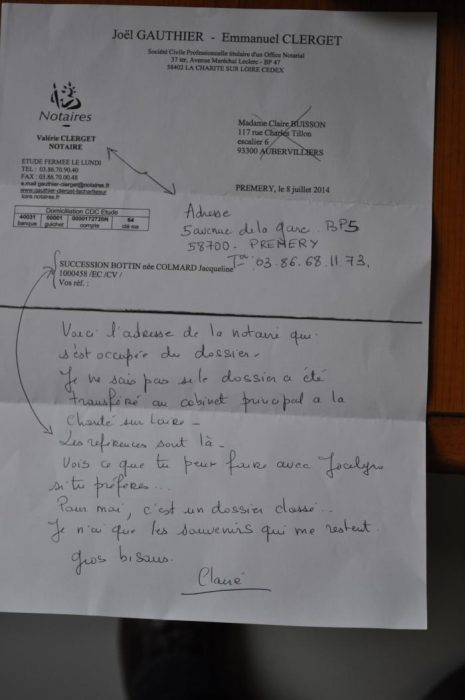 Joël GAUTHIER - Emmanuel CLERGET
Société Civile Professionnelle titulaire d'un Office Notarial
37 ter, Avenue Maréchal Leclerc - BP 47
58402 LA CHARITE SUR LOIRE CEDEX
Notaires
Valérie CLERGET
NOTAIRE
ETUDE FERMEE LE LUNDI
TEL : 03.86.70.90.40
FAX : 03.86.70.00.48
e.mail:gauthier-clerget@notaires.fr
www.gauthier-clerget-lachartesur
loire.notaires.fr
Domiciliation CDC Etude
40031 00001 0000172720N 64
banque guichet compte clé rib
Madame Claire BUISSON
117 rue Charles Tillon
escalier 6
93300 AUBERVILLIERS
PREMERY, le 8 juillet 2014
Adresse
5 avenue de la gare. BP5
58700 - PREMERY
Tel : 03.86.68.11.73.
SUCCESSION BOTTIN née COLMARD Jacqueline
1000458 /EC /CV /
Vos réf. :
Voici l'adresse de la notaire qui
s'est occupée du dossier.
Je ne sais pas si le dossier a été
transféré au cabinet principal a la
Charité sur Loire -
Les références sont là -
Vois ce que tu peux faire avec Jocelyne
si tu préfères...
Pour moi, c'est un dossier classé..
Je n'ai que les souvenirs qui me restent.
Gros bisous.
Claire